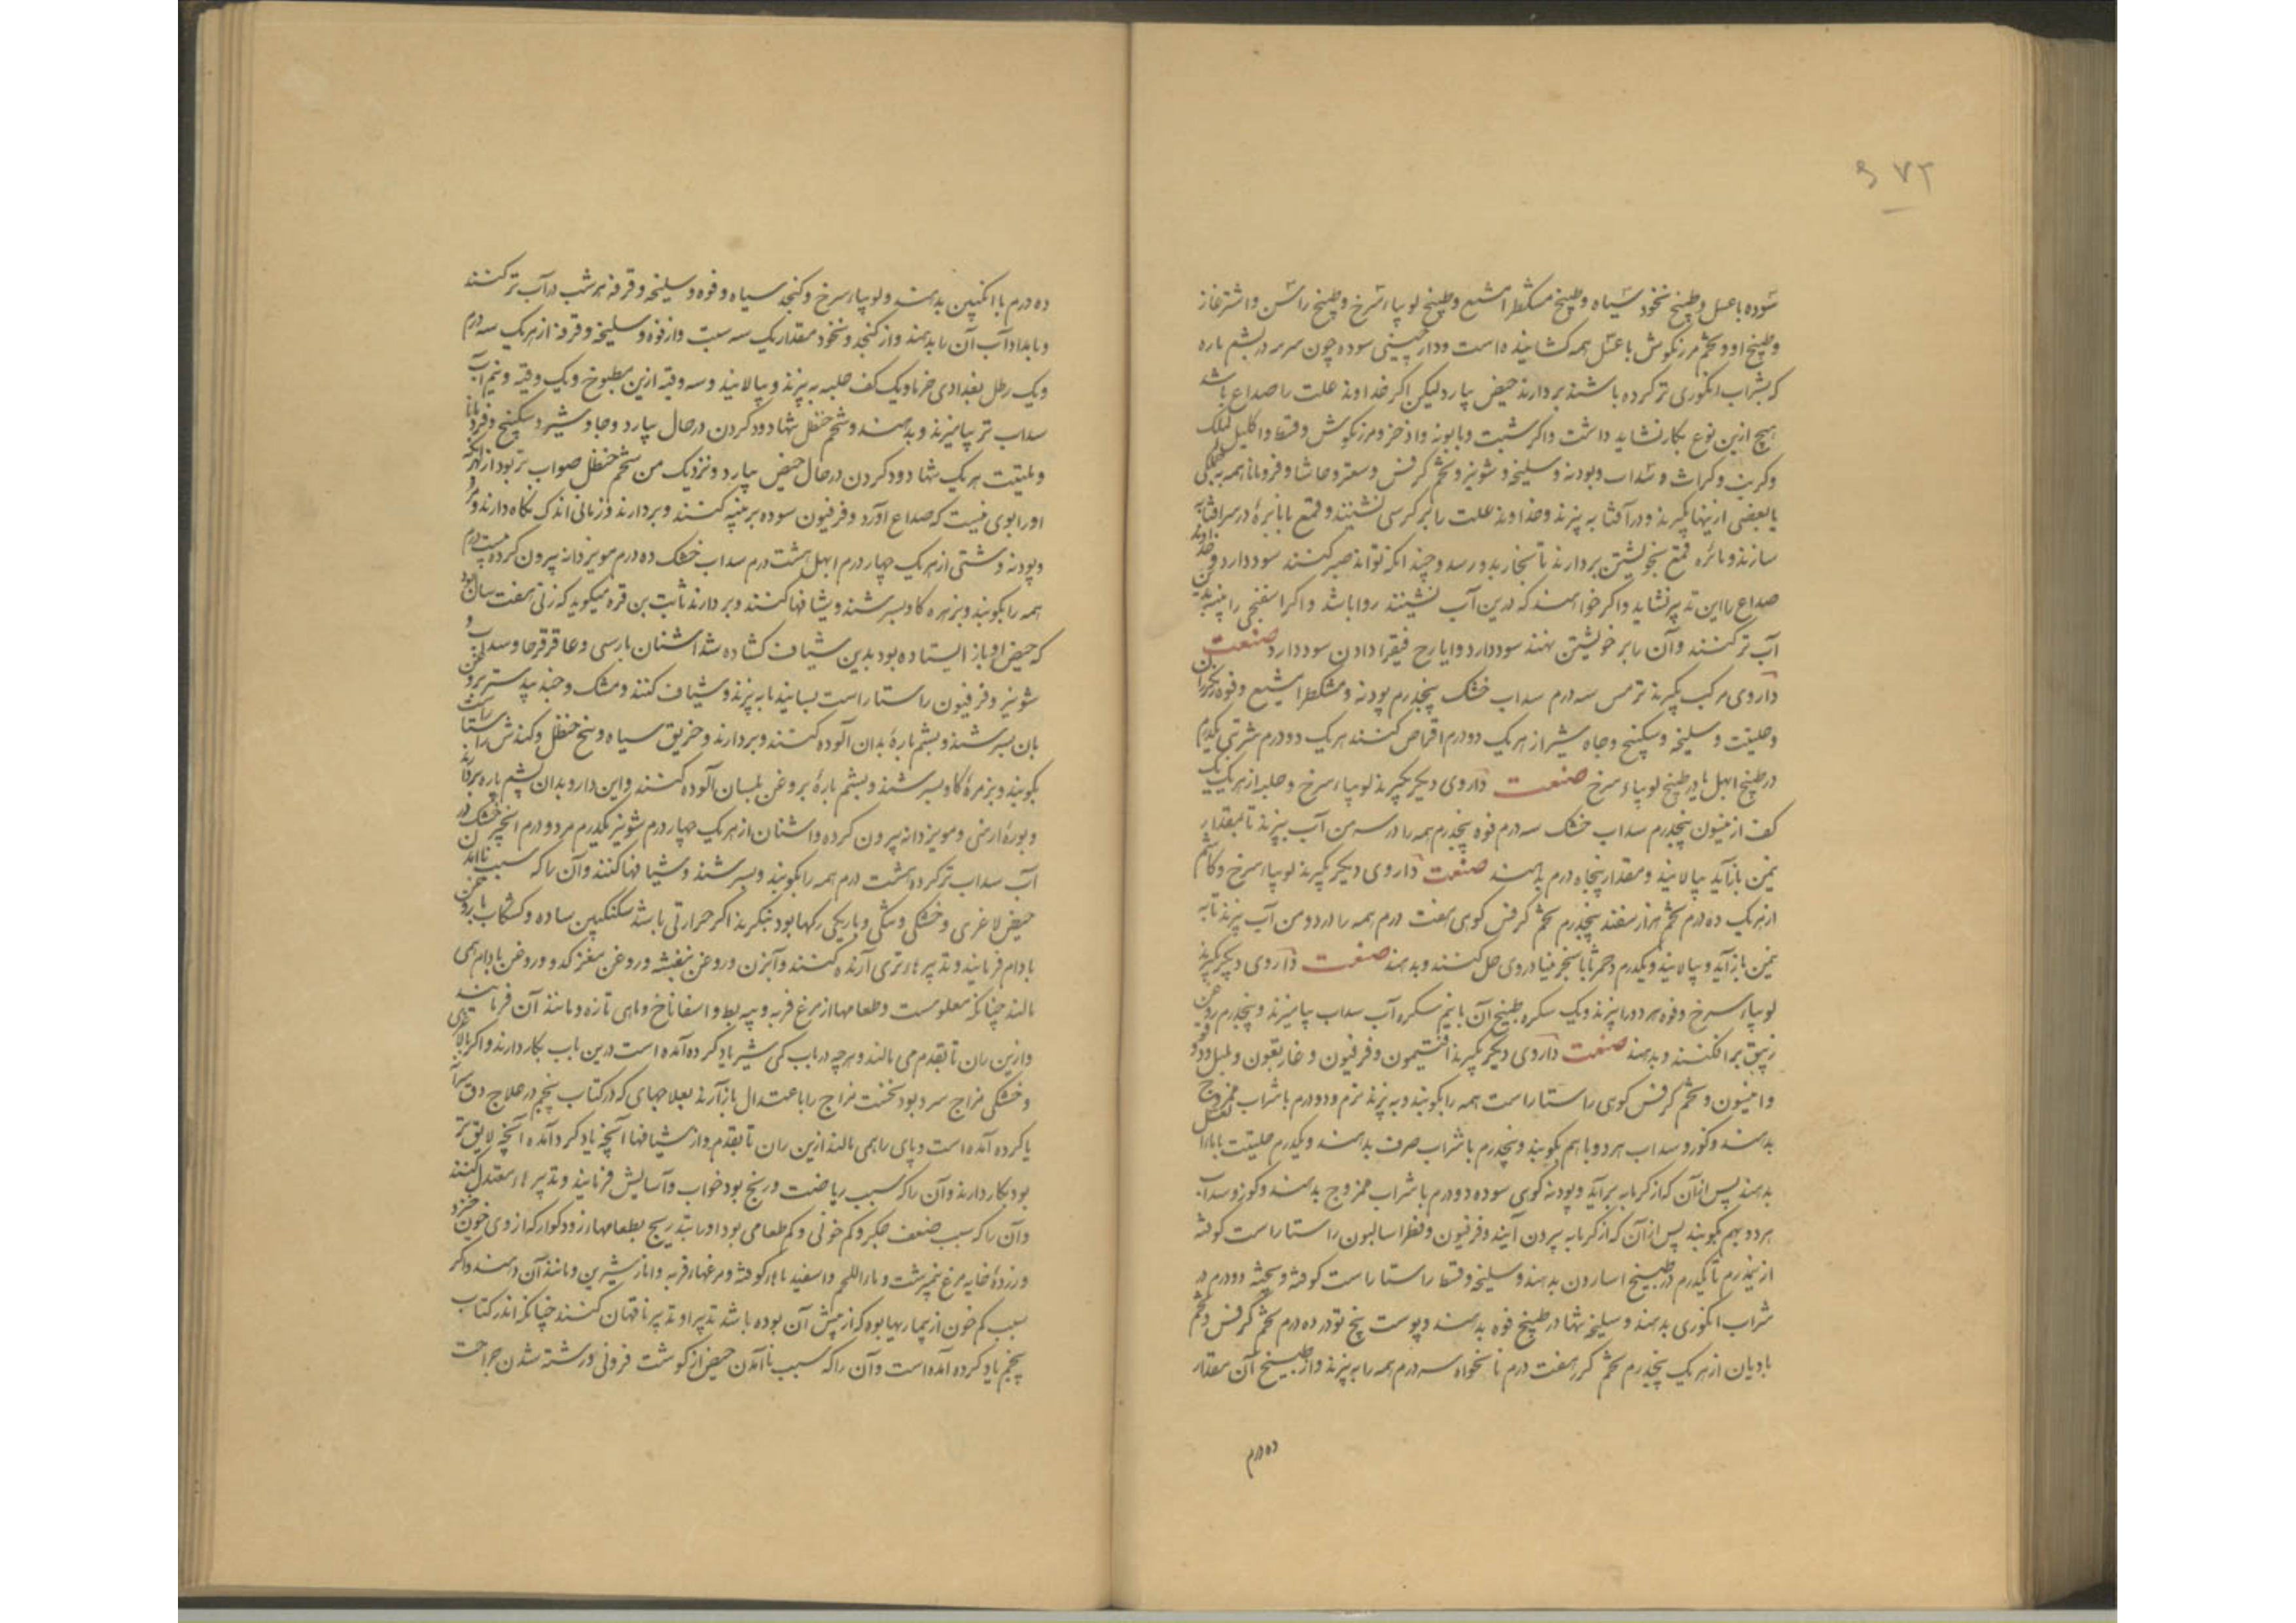 ۶۷۲
سوده با عسل و طبیخ نخود سیاه و طبیخ مشکطرامشیع و طبیخ لوبیاء سرخ و طبیخ راسن و اشترغاز
و طبیخ او و تخم مرزنکوش با عسل همه کشاینده است و دارچینی سوده چون سرمه در پشم پاره
که بشراب انکوری تر کرده باشند بردارند حیض بیارد لیکن اکر خداوند علت را صداع باشد
هیچ ازین نوع بکار نشاید داشت و اکر شبت و بابونه و اذخر و مرزنکوش و قسط و اکلیل الملک
و کرنب و کراث و سداب و پودنه و سلیخه و شونیز و تخم کرفس و سعتر و حاشا و فرومانا همه بهمکی
یا بعضی ازینها بکیرند و در آفتابه بپزند و خداوند علت را بر کرسی نشینند و قمع با نایزه در سر آفتابه
سازند و نائزه قمع بخویشتن بردارند تا بخار بدو رسد و چندانکه تواند صبر کنند سود دارد و خداوند
صداع را این تدبیر نشاید و اکر خواهند که درین آب نشینند روا باشد و اکر اسفنجی را بدین
آب تر کنند و آن را بر خویشتن نهند سود دارد و ایارج فیقرا دادن سود دارد صنعت
داروی مرکب بکیرند ترمس سه درم سداب خشک پنجدرم پودنه و مشکطرامشیع و فوه
و حلیتت و سلیخه و سکبینج و جاوشیر از هر یک دو درم اقراص کنند هر یک دو درم شربتی یکدرم
در طبیخ ابهل یا در طبیخ لوبیاء سرخ صنعت داروی دیکر بکیرند لوبیاء سرخ و حلبه از هر یک یک
کف انیسون پنجدرم سداب خشک سه درم فوه پنجدرم همه را در سه من آب بپزند تا بمقدار
نیمن بازآید بپالایند و مقدار پنجاه درم بدهند صنعت داروی دیکر بکیرند لوبیاء سرخ و کاشم
از هر یک ده درم تخم هزار سفند پنجدرم تخم کرفس کوهی هفت درم همه را در دو من آب بپزند تا به
نیمن بازآید و بپالایند و یکدرم دحمرثا با سنجرنیا در وی حل کنند و بدهند صنعت داروی دیکر بکیرند
لوبیاء سرخ و فوه هر دو را بپزند و یک سکره طبیخ آن با نیم سکره آب سداب بیامیزند و پنجدرم روغن
زنبق برافکنند و بدهند صنعت داروی دیکر بکیرند افتیمون و فرفیون و غاریقون و
و انیسون و تخم کرفس کوهی راستاراست همه را بکوبند و به پزند نرم و دو درم با شراب ممزوج
بدهند و کوز و سداب هر دو با هم بکوبند و پنجدرم با شراب صرف بدهند و یکدرم حلیتت با ماء العسل
بدهند پس از آن که از کرمابه برآید و پودنه کوهی سوده دو درم با شراب ممزوج بدهند و کوز و سداب
هر دو بهم بکوبند پس از آن که از کرمابه بیرون آیند و فرفیون و فطراسالیون راستاراست کوفته
از نیدرم تا یکدرم در طبیخ اسارون بدهند و سلیخه و قسط راستاراست کوفته و بیخته دو درم در
شراب انکوری بدهند و سلیخه تنها در طبیخ فوه بدهند و پوست بیخ توت ده درم تخم کرفس و تخم
بادیان از هر یک پنجدرم تخم کزر هفت درم نانخواه سه درم همه را بپزند و از طبیخ آن مقدار
ده درم
ده درم با انکبین بدهند و لوبیاء سرخ و کنجد سیاه و فوه و سلیخه و قرفه هر شب در آب تر کنند
و بامداد آب آن را بدهند و از کنجد و نخود مقدار یک سه سبت و از فوه و سلیخه و قرفه از هر یک سه درم
و یک رطل بغدادی خرما و یک کف حلبه به پزند و بپالایند و سه وقیه ازین مطبوخ و یک وقیه و نیم آب
سداب تر بیامیزند و بدهند و شحم حنظل تنها دود کردن در حال بیارد و جاوشیر و سکبینج و فردمانا
و حلتیت هر یک تنها دود کردن در حال حیض بیارد و نزدیک من شحم حنظل صواب تر بود از بهر آنکه
او را بوی نیست که صداع آورد و فرفیون سوده بر پنبه کنند و بردارند و زمانی اندک نکاه دارند و مر
و پودنه و مشتی از هر یک چهار درم ابهل هشت درم سداب خشک ده درم مویز دانه بیرون کرده بیست درم
همه را بکوبند و بزهره کاو بسرشند و شیافها کنند و بردارند ثابت بن قره میکوید که زنی هفت سال بود
که حیض او باز ایستاده بود بدین شیاف کشاده شد اشنان پارسی و عاقرقرحا و سداب و
شونیز و فرفیون راستاراست بسایند تا به پزند و شیاف کنند و مشک و جندبیدستر بروغن
بان بسرشند و پشم پاره بدان آلوده کنند و بردارند و خربق سیاه و بیخ حنظل و کندش راستاراست
بکوبند و بزهره کاو بسرشند و پشم پاره بروغن بلسان آلوده کنند و این دارو بدان پشم پاره بردارند
و بوره ارمنی و مویز دانه بیرون کرده و اشنان از هر یک چهار درم شونیز یکدرم مر دو درم انجیر خشک در
آب سداب تر کرده هشت درم همه را بکوبند و بسرشند و شیافها کنند و آن را که سبب ناآمدن
حیض لاغری و خشکی و تنکی و باریکی رکها بود بنکرند اکر حرارتی باشد سکنکبین ساده و کشکاب با روغن
بادام فرمایند و تدبیرهاء تری آرنده کنند و آبزن و روغن بنفشه و روغن مغز کدو و روغن بادام همی
مالند چنانکه معلومست و طعامها از مرغ فربه و پیه بط و اسفاناخ و ماهی تازه و مانند آن فرمایند
و از بن ران تا بقدم می مالند و هرچه در باب کمی شیر یاد کرده آمده است درین باب بکار دارند و اکر با لاغری
و خشکی مزاج سرد بود نخست مزاج را باعتدال بازآرند بعلاجهای که در کتاب پنجم در علاج دق
یا کرده آمده است و پای را همی مالند از بن ران تا بقدم و از شیافها آنچه یاد کرد آمده آنچه لایق تر
بود بکار دارند و آن را که سبب ریاضت و رنج بود خواب و آسایش فرمایند و تدبیرهاء معتدل کنند
و آن را که سبب ضعف جکر و کم خونی و کم طعامی بود او را بتدریج بطعامها زودکوار که از وی خون خیزد
و زرده خایه مرغ نیم برشت و ماء اللحم و اسفیدباها کوفته و مرغهاء فربه و انار شیرین و مانند آن دهند و اکر
سبب کم خون از بیماریها بوده که از پیش آن بوده باشد تدبیر او تدبیر ناقهان کنند چنانکه اندر کتاب
پنجم یاد کرده آمده است و آن را که سبب ناآمدن حیض از کوشت فزونی و رشته شدن جراحت